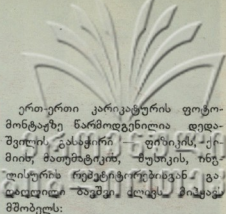 ერთ-ერთი კარიკატურის ფოტო-
მონტაჟზე წარმოდგენილია დედა-
შვილის გასაჭირი — ფიზიკის, ქი-
მიის, მათემატიკის, მუსიკის, ინგ-
ლისურის რეპეტიტორებისგან გა-
ბავშვი ძლივს მიჰყავს
მშობელს: